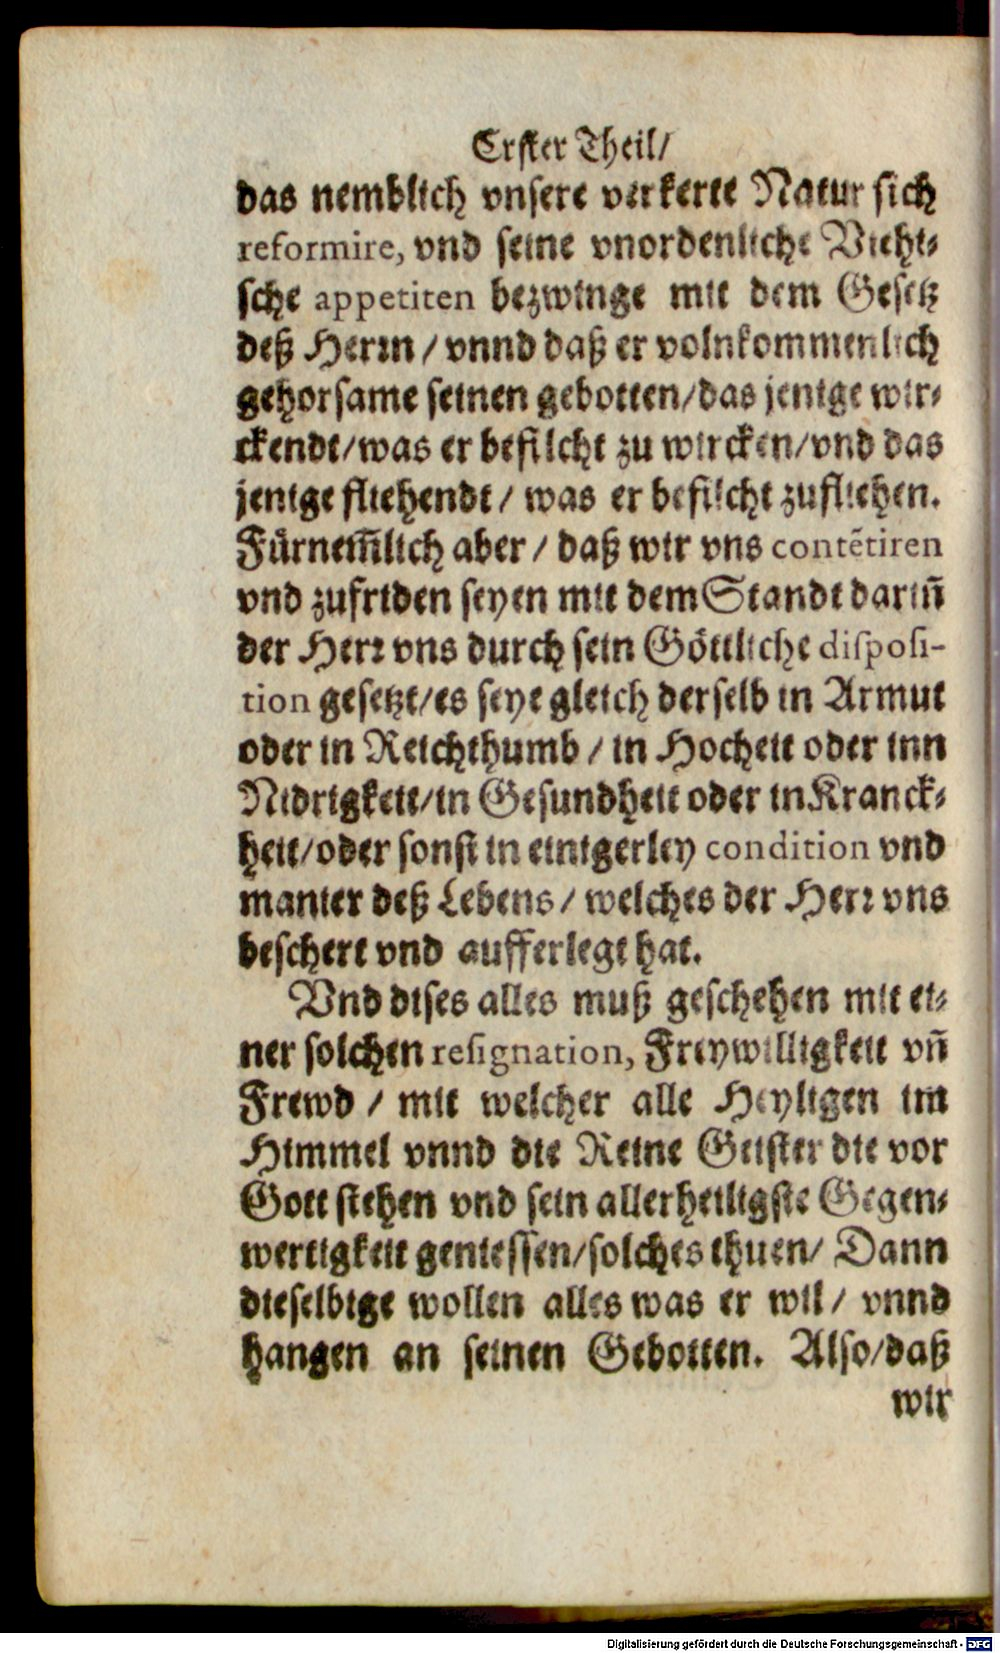 Erster Theil/
das nemblich vnsere verkerte Natur sich
reformire, vnd seine vnordenliche Viehi⸗
sche appetiten bezwinge mit dem Gesetz
deß Herrn / vnnd daß er volnkommenlich
gehorsame seinen gebotten/das jenige wir⸗
ckendt/was er befilcht zu wircken/vnd das
jenige fliehendt / was er befilcht zufliehen.
Fürnem̃lich aber / daß wir vns contẽtiren
vnd zufriden seyen mit dem Standt dariñ
der Herr vns durch sein Göttliche disposi-
tion gesetzt/es seye gleich derselb in Armut
oder in Reichthumb / in Hocheit oder inn
Nidrigkeit/in Gesundheit oder in Kranck⸗
heit/oder sonst in einigerley condition vnd
manier deß Lebens / welches der Herr vns
beschert vnd aufferlegt hat.
Vnd dises alles muß geschehen mit ei⸗
ner solchen resignation, Freywilligkeit vñ
Frewd / mit welcher alle Heyligen im
Himmel vnnd die Reine Geister die vor
Gott stehen vnd sein allerheiligste Gegen⸗
wertigkeit geniessen/solches thuen/ Dann
dieselbige wollen alles was er wil/ vnnd
hangen an seinen Gebotten. Also/daß
wir
Digitalisierung gefördert durch die Deutsche Forschungsgemeinschaft - DFG